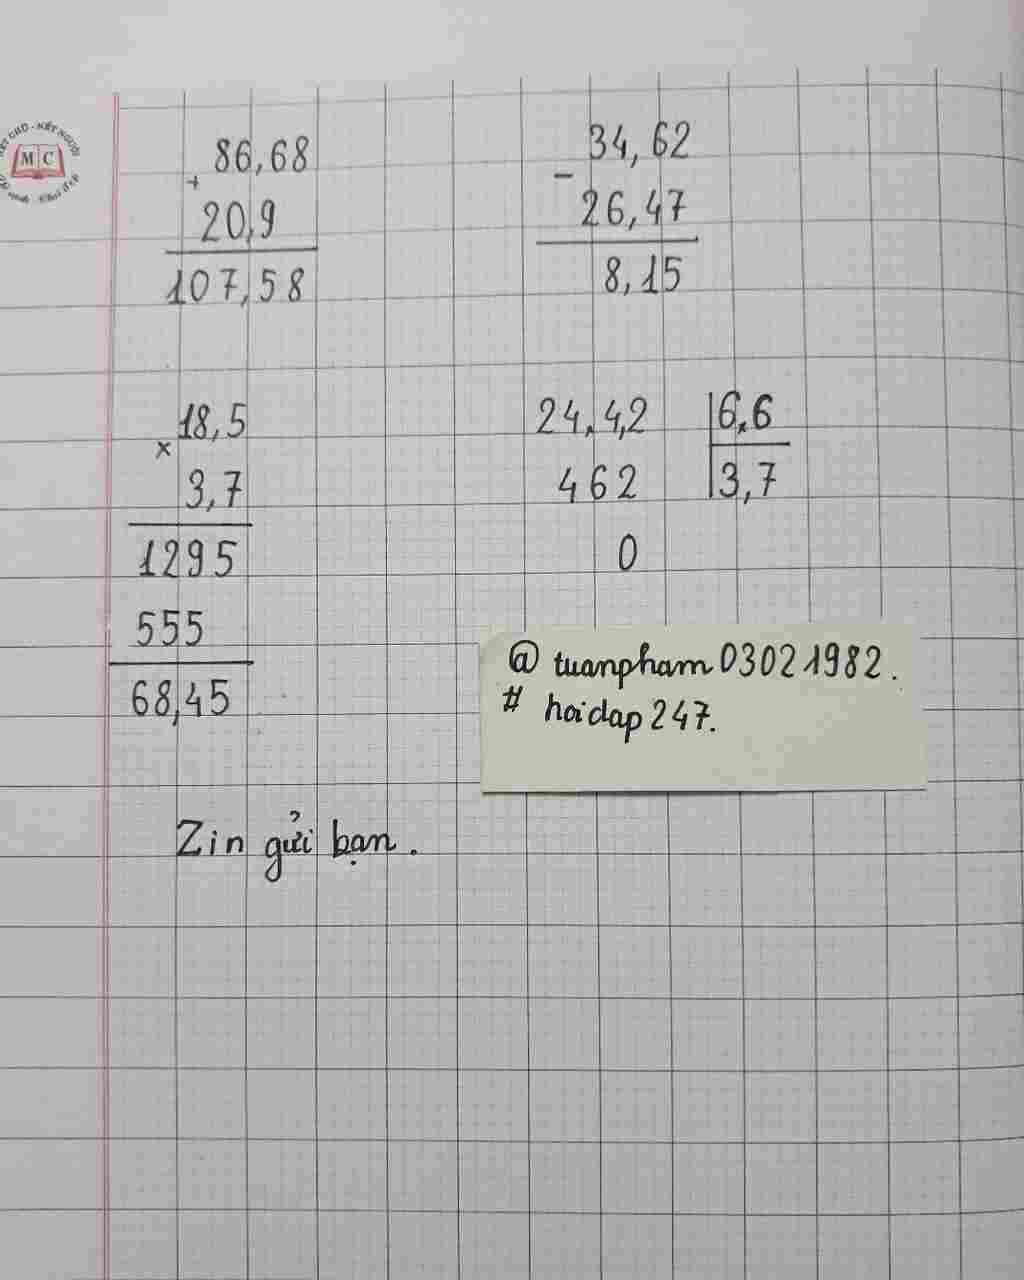 86,68
+
20,9
107,58
34,62
-
26,47
8,15
18,5
x
3,7
1295
555
68,45
24,4,2 6,6
462 3,7
0
@ tuanpham03021982.
# hoidap247.
Zin gửi bạn.
KẾT CHỮ - KẾT NGƯỜI
MC